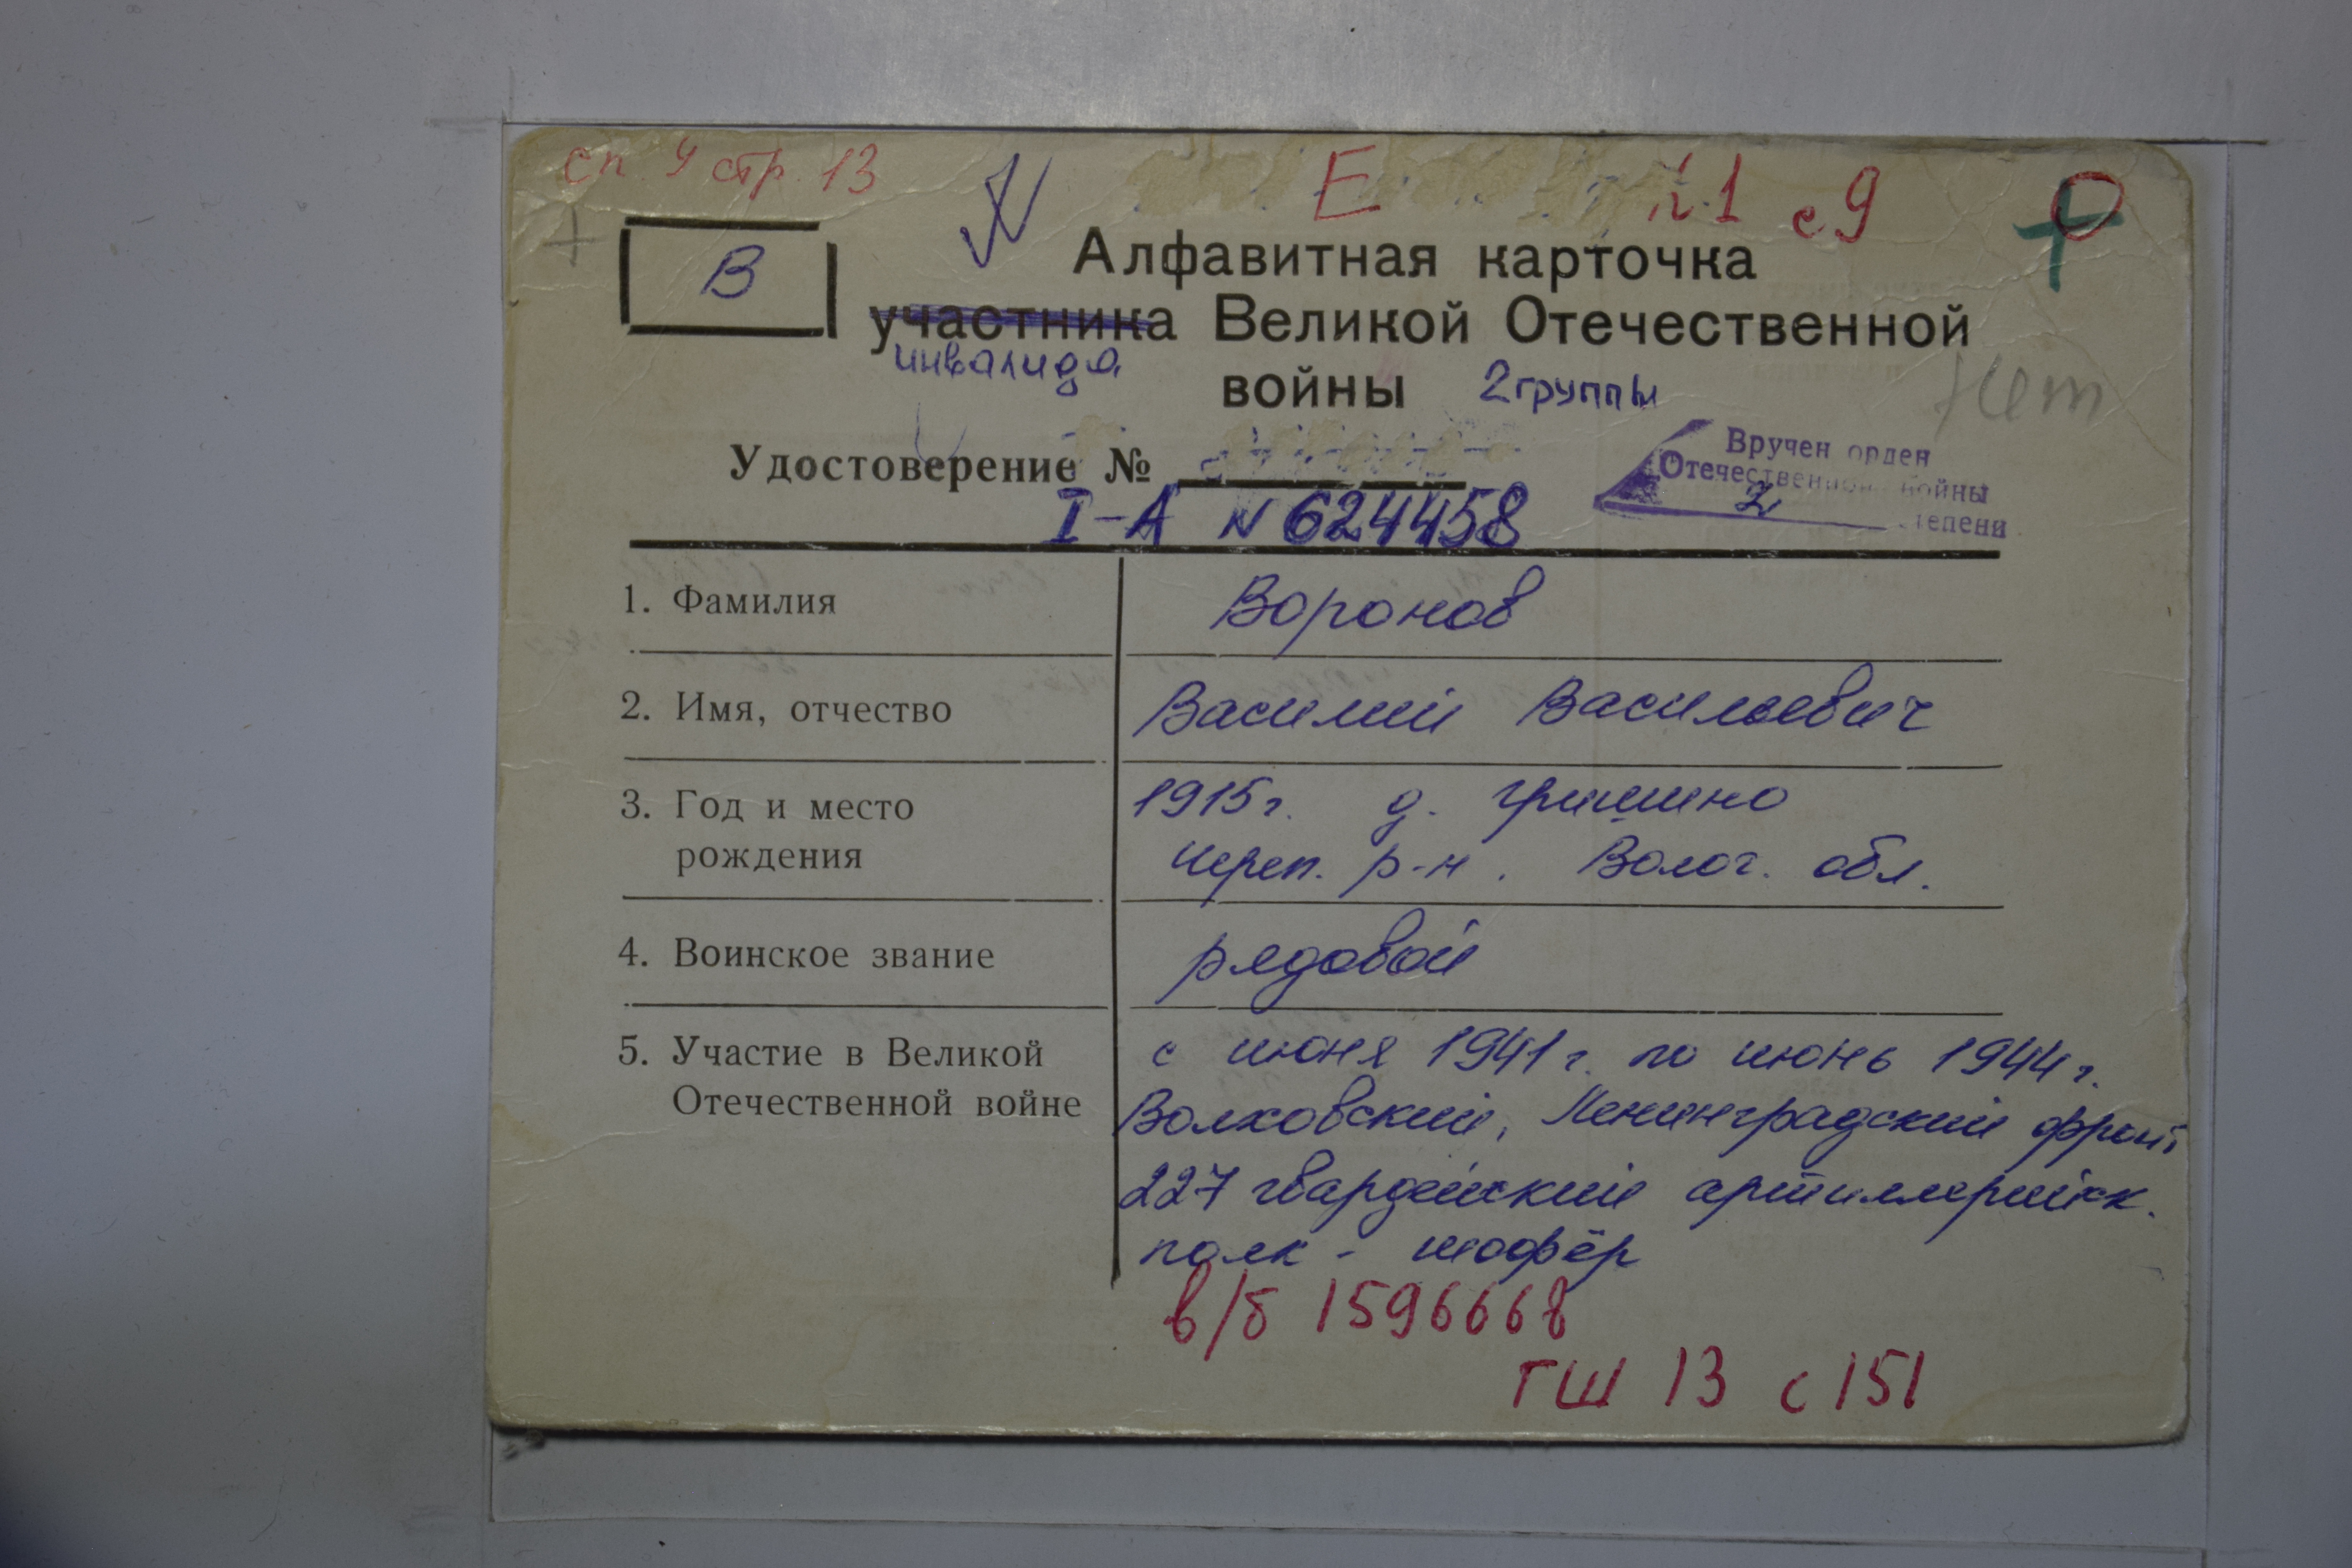 сп. 4 стр. 13
Е
№1 с 9
В
Алфавитная карточка
участника Великой Отечественной
инвалида
войны 2 группы
Нет
Удостоверение №
I-А N 624458
Вручен орден
Отечественной войны
2 степени
1. Фамилия Воронов
2. Имя, отчество Василий Васильевич
3. Год и место 1915г. д. Гришино
рождения Череп. р-н. Волог. обл.
4. Воинское звание рядовой
5. Участие в Великой с июня 1941г. по июнь 1944г.
Отечественной войне Волховский, Ленинградский фронт
227 гвардейский артиллерийск.
полк - шофёр
в/б 1596668
ГШ 13 с 151